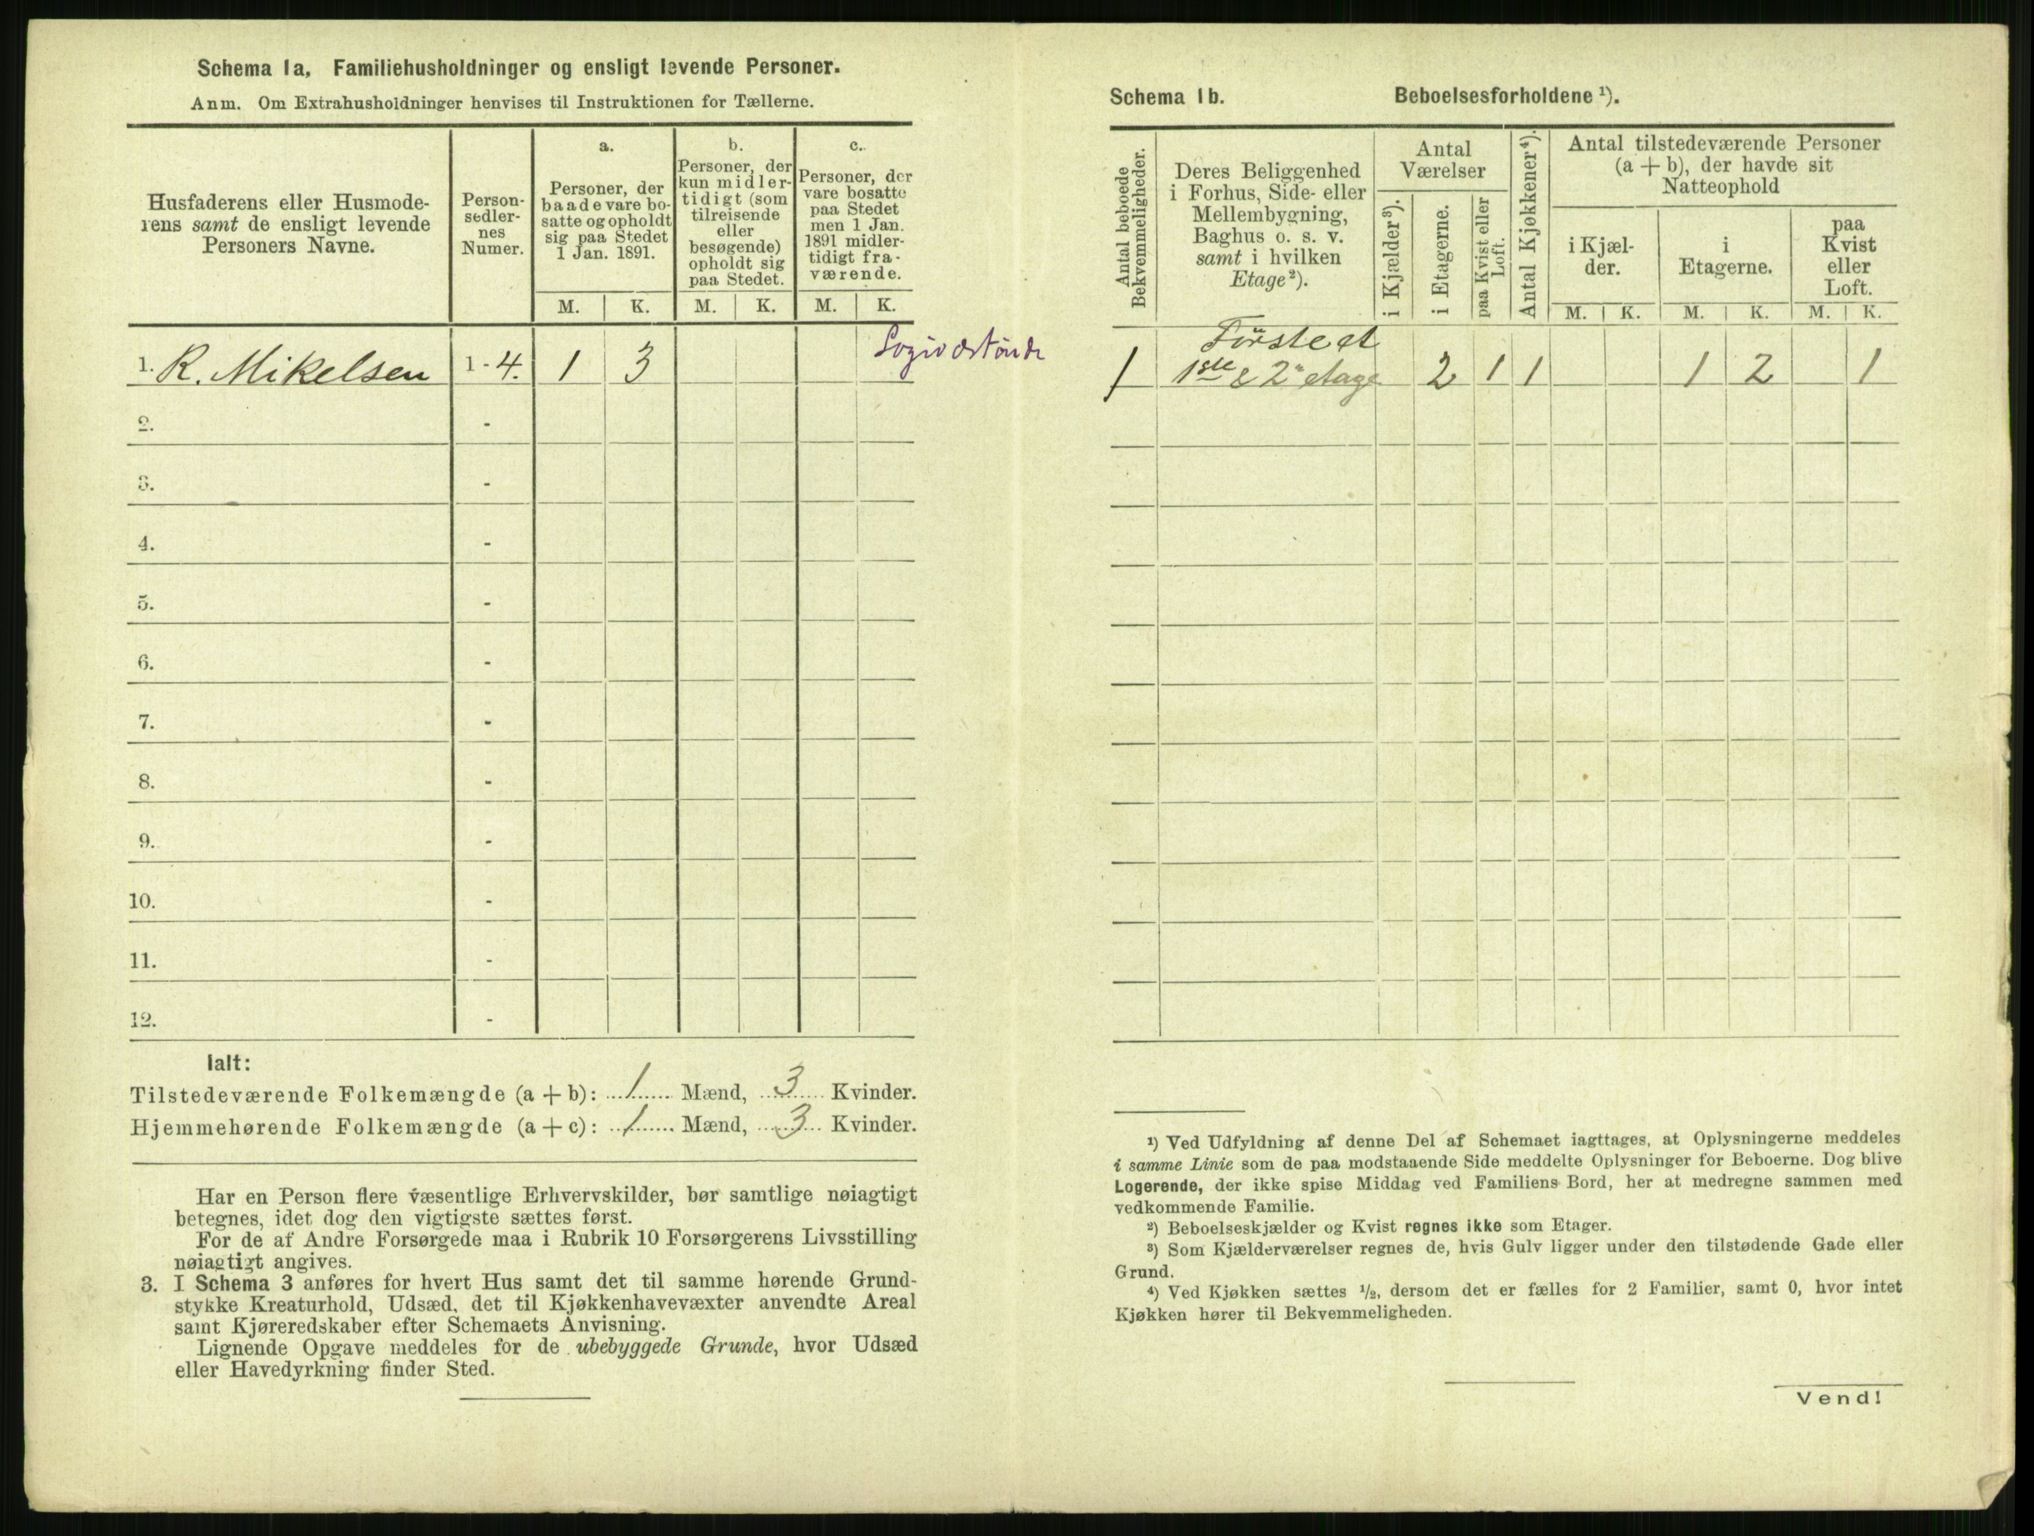 Schema 1a, Familiehusholdninger og ensligt levende Personer.
Anm. Om Extrahusholdninger henvises til Instruktionen for Tællerne.
Husfaderens eller Husmode-
rens samt de ensligt levende
Personers Navne.
Person-
sedler-
nes
Numer.
a.
Personer, der
baade vare bo-
satte og opholdt
sig paa Stedet
1 Jan. 1891.
b.
Personer, der
kun midler-
tidigt (som
tilreisende
eller
besøgende)
opholdt sig
paa Stedet.
c.
Personer, der
vare bosatte
paa Stedet
men 1 Jan.
1891 midler-
tidigt fra-
værende.
M. K. M. K. M. K.
1. R. Mikelsen 1-4. 1 3
2. -
3. -
4. -
5. -
6. -
7. -
8. -
9. -
10. -
11. -
12. -
Ialt:
Tilstedeværende Folkemængde (a + b): 1 Mænd, 3 Kvinder.
Hjemmehørende Folkemængde (a + c): 1 Mænd, 3 Kvinder.
Har en Person flere væsentlige Erhvervskilder, bør samtlige nøiagtigt
betegnes, idet dog den vigtigste sættes først.
For de af Andre Forsørgede maa i Rubrik 10 Forsørgerens Livsstilling
nøiagtigt angives.
3. I Schema 3 anføres for hvert Hus samt det til samme hørende Grund-
stykke Kreaturhold, Udsæd, det til Kjøkkenhavevæxter anvendte Areal
samt Kjøreredskaber efter Schemaets Anvisning.
Lignende Opgave meddeles for de ubebyggede Grunde, hvor Udsæd
eller Havedyrkning finder Sted.
Schema 1b. Beboelsesforholdene ¹).
Antal beboede
Bekvemmeligheder.
Deres Beliggenhed
i Forhus, Side- eller
Mellembygning,
Baghus o. s. v.
samt i hvilken
Etage²).
Antal
Værelser
i Kjælder³).
i Etagerne.
paa Kvist eller
Loft.
Antal Kjøkkener⁴).
Antal tilstedeværende Personer
(a + b), der havde sit
Natteophold
i Kjæl-
der.
i
Etagerne.
paa
Kvist
eller
Loft.
M. K. M. K. M. K.
1 1ste & 2" etage 2 1 1 1 2 1
¹) Ved Udfyldning af denne Del af Schemaet iagttages, at Oplysningerne meddeles
i samme Linie som de paa modstaaende Side meddelte Oplysninger for Beboerne. Dog blive
Logerende, der ikke spise Middag ved Familiens Bord, her at medregne sammen med
vedkommende Familie.
²) Beboelseskjælder og Kvist regnes ikke som Etager.
³) Som Kjælderværelser regnes de, hvis Gulv ligger under den tilstødende Gade eller
Grund.
⁴) Ved Kjøkken sættes ½, dersom det er fælles for 2 Familier, samt 0, hvor intet
Kjøkken hører til Bekvemmeligheden.
Vend!